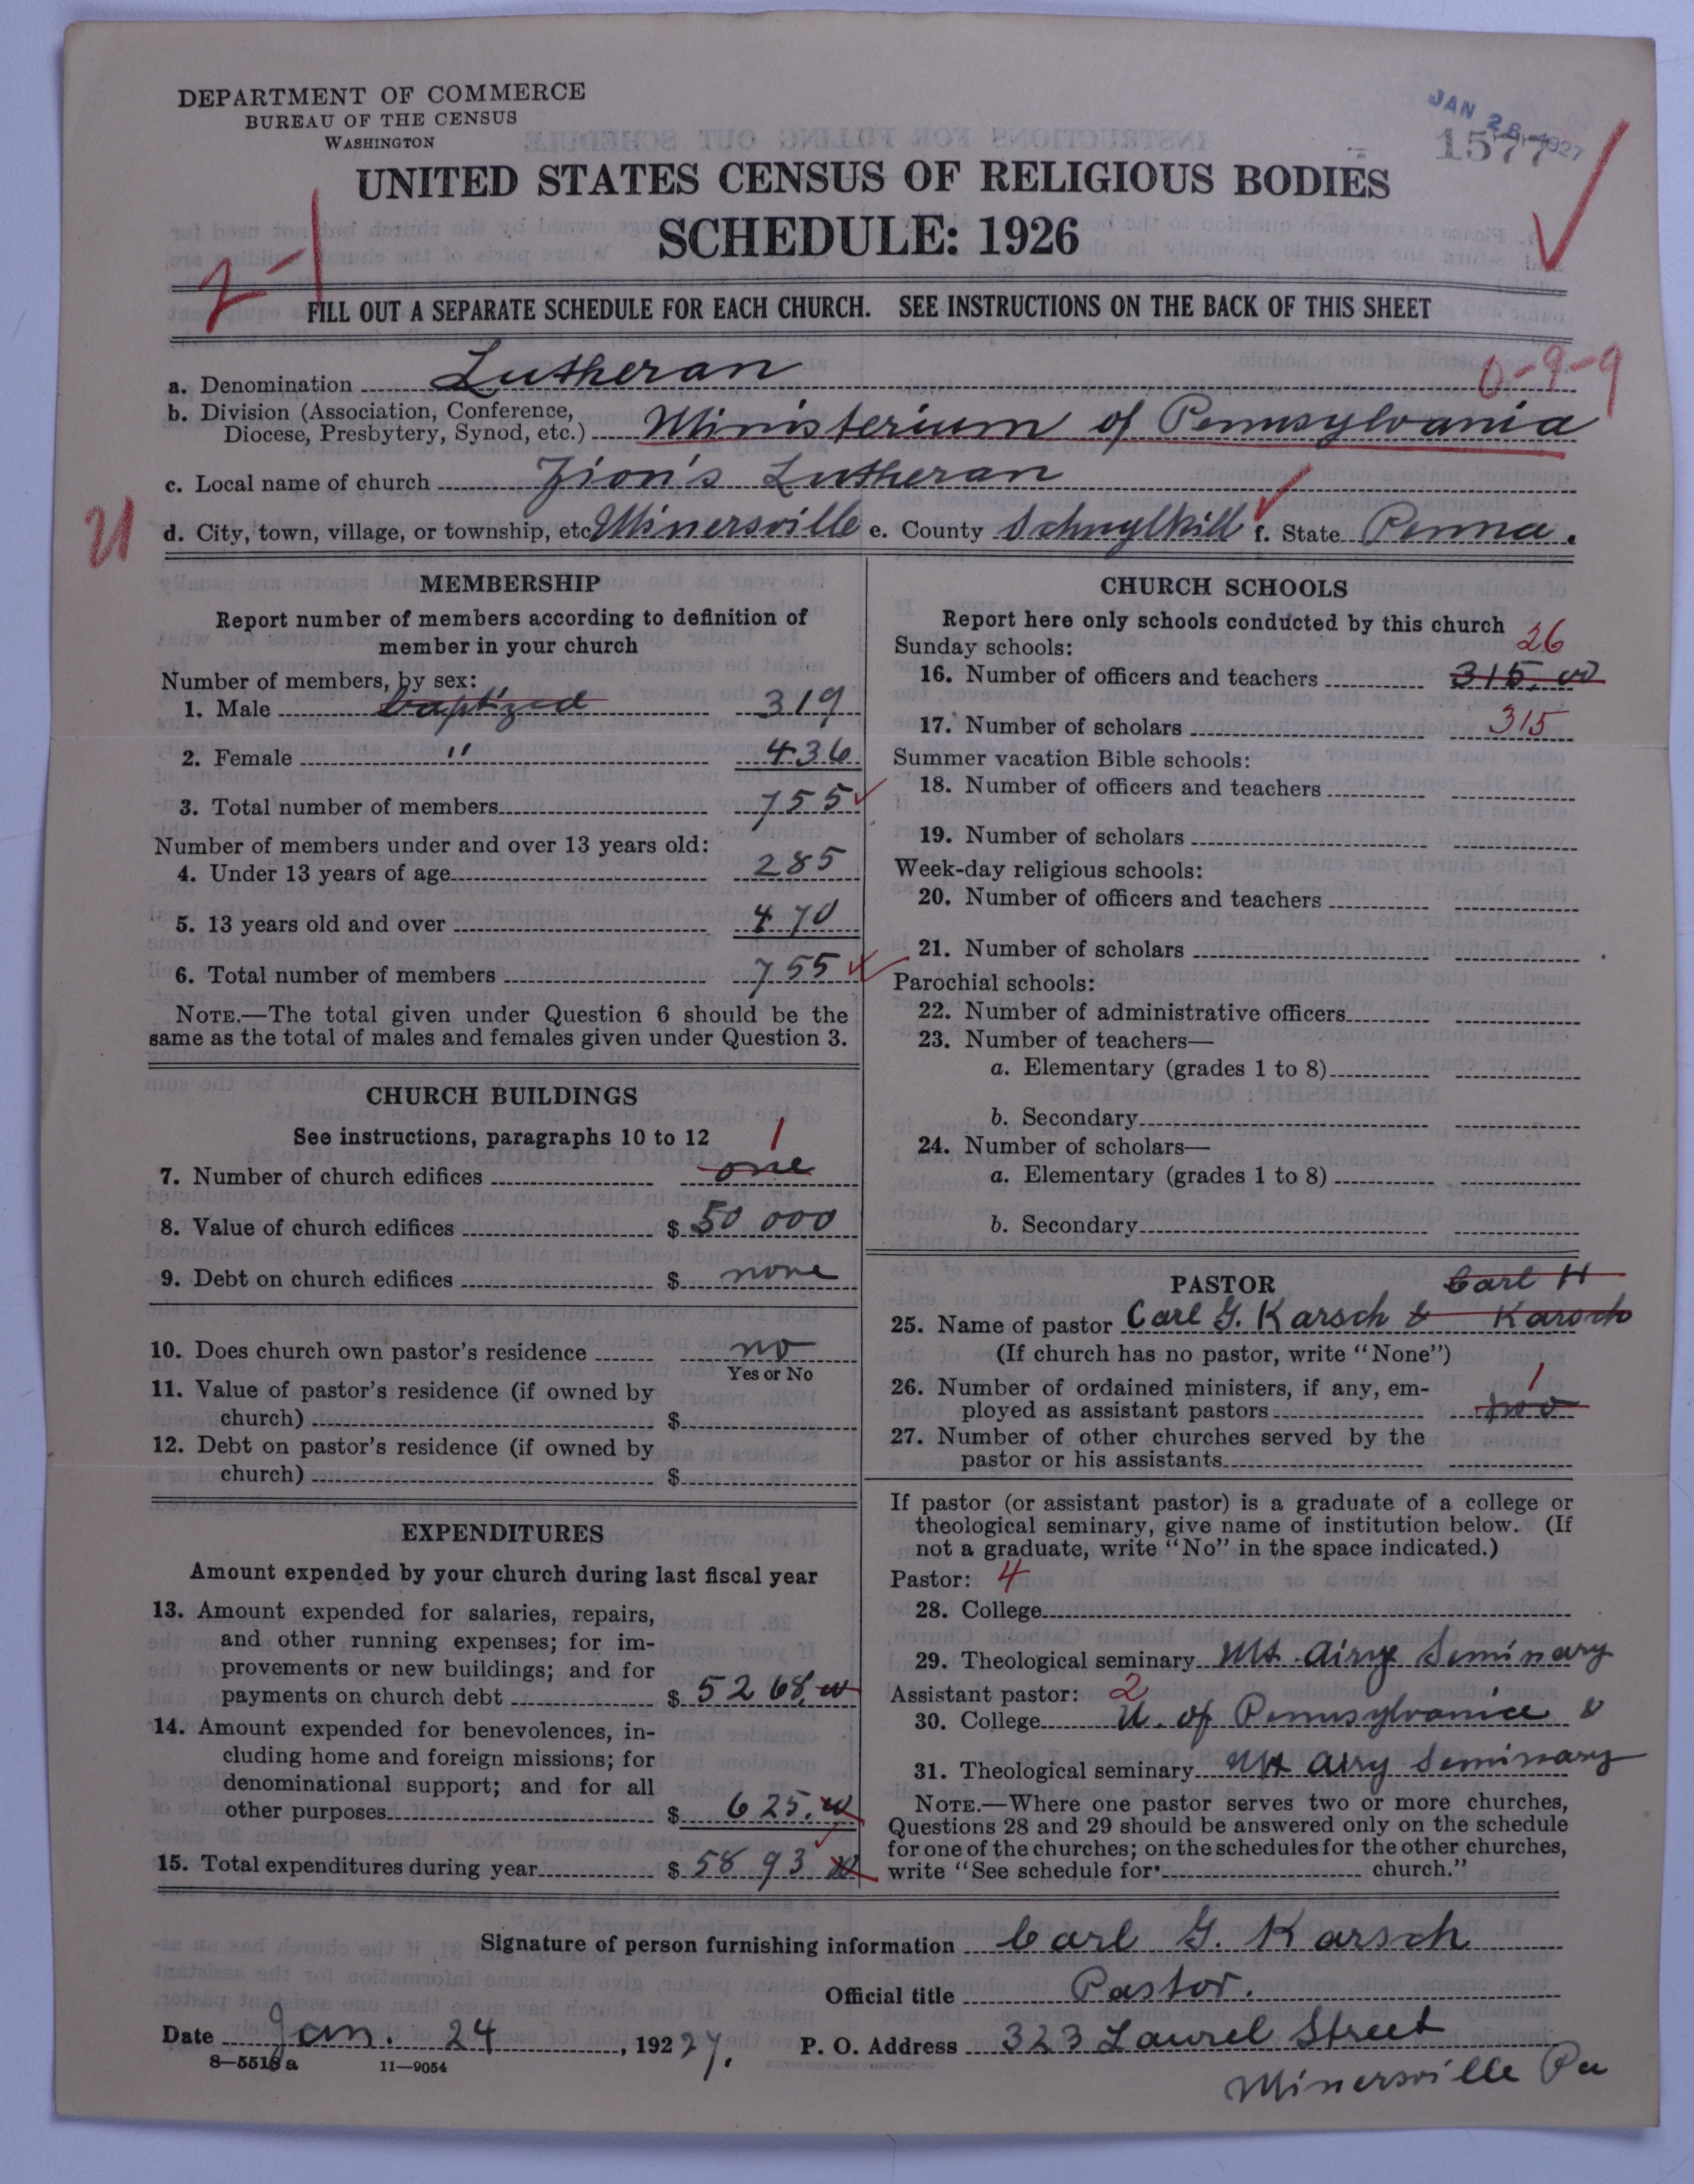 DEPARTMENT OF COMMERCE
BUREAU OF THE CENSUS
WASHINGTON
JAN 28 1927
1577
UNITED STATES CENSUS OF RELIGIOUS BODIES
SCHEDULE: 1926
2-1
FILL OUT A SEPARATE SCHEDULE FOR EACH CHURCH. SEE INSTRUCTIONS ON THE BACK OF THIS SHEET
0-9-9
a. Denomination Lutheran
b. Division (Association, Conference,
Diocese, Presbytery, Synod, etc.) Ministerium of Pennsylvania
c. Local name of church Zion's Lutheran
U
d. City, town, village, or township, etc. Minersville e. County Schuylkill f. State Penna.
MEMBERSHIP
Report number of members according to definition of
member in your church
Number of members, by sex:
1. Male baptized 319
2. Female " 436
3. Total number of members 755
Number of members under and over 13 years old:
4. Under 13 years of age 285
5. 13 years old and over 470
6. Total number of members 755
NOTE.—The total given under Question 6 should be the
same as the total of males and females given under Question 3.
CHURCH BUILDINGS
See instructions, paragraphs 10 to 12
1
7. Number of church edifices one
8. Value of church edifices $ 50 000
9. Debt on church edifices $ none
10. Does church own pastor's residence no
Yes or No
11. Value of pastor's residence (if owned by
church) $
12. Debt on pastor's residence (if owned by
church) $
EXPENDITURES
Amount expended by your church during last fiscal year
13. Amount expended for salaries, repairs,
and other running expenses; for im-
provements or new buildings; and for
payments on church debt $ 5268.00
14. Amount expended for benevolences, in-
cluding home and foreign missions; for
denominational support; and for all
other purposes $ 625.00
15. Total expenditures during year $ 5893 00
CHURCH SCHOOLS
Report here only schools conducted by this church
Sunday schools: 26
16. Number of officers and teachers 315.00
17. Number of scholars 315
Summer vacation Bible schools:
18. Number of officers and teachers
19. Number of scholars
Week-day religious schools:
20. Number of officers and teachers
21. Number of scholars
Parochial schools:
22. Number of administrative officers
23. Number of teachers—
a. Elementary (grades 1 to 8)
b. Secondary
24. Number of scholars—
a. Elementary (grades 1 to 8)
b. Secondary
PASTOR Carl H
25. Name of pastor Carl G. Karsch & Karsch
(If church has no pastor, write "None")
26. Number of ordained ministers, if any, em- 1
ployed as assistant pastors two
27. Number of other churches served by the
pastor or his assistants
If pastor (or assistant pastor) is a graduate of a college or
theological seminary, give name of institution below. (If
not a graduate, write "No" in the space indicated.)
Pastor: 4
28. College
29. Theological seminary Mt. Airy Seminary
Assistant pastor: 2
30. College U. of Pennsylvania &
31. Theological seminary Mt Airy Seminary
NOTE.—Where one pastor serves two or more churches,
Questions 28 and 29 should be answered only on the schedule
for one of the churches; on the schedules for the other churches,
write "See schedule for church."
Signature of person furnishing information Carl G. Karsch
Official title Pastor.
Date Jan. 24, 192 27. P. O. Address 323 Laurel Street
8—5518 a 11—9054
Minersville Pa